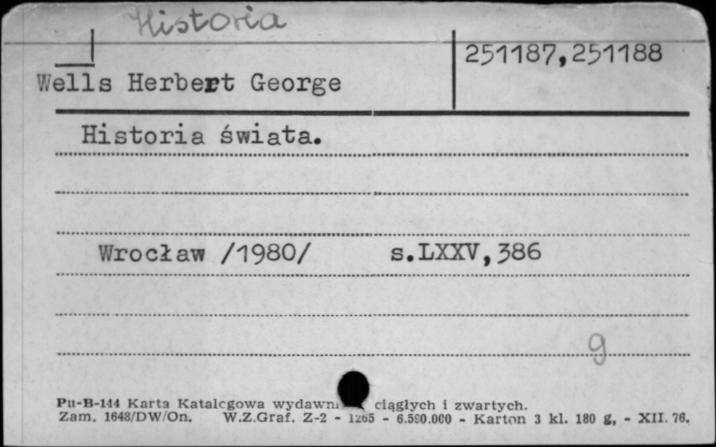 Historia
251187,251188
Wells Herbert George
Historia świata.
Wrocław /1980/ s.LXXV,386
g
Pu-B-144 Karta Katalogowa ciągłych i zwartych.
Zam. 1648/DW/On. W.Z.Graf. Z-2 - 1265 - 6.590.000 - Karton 3 kl. 180 g, - XII. 76.